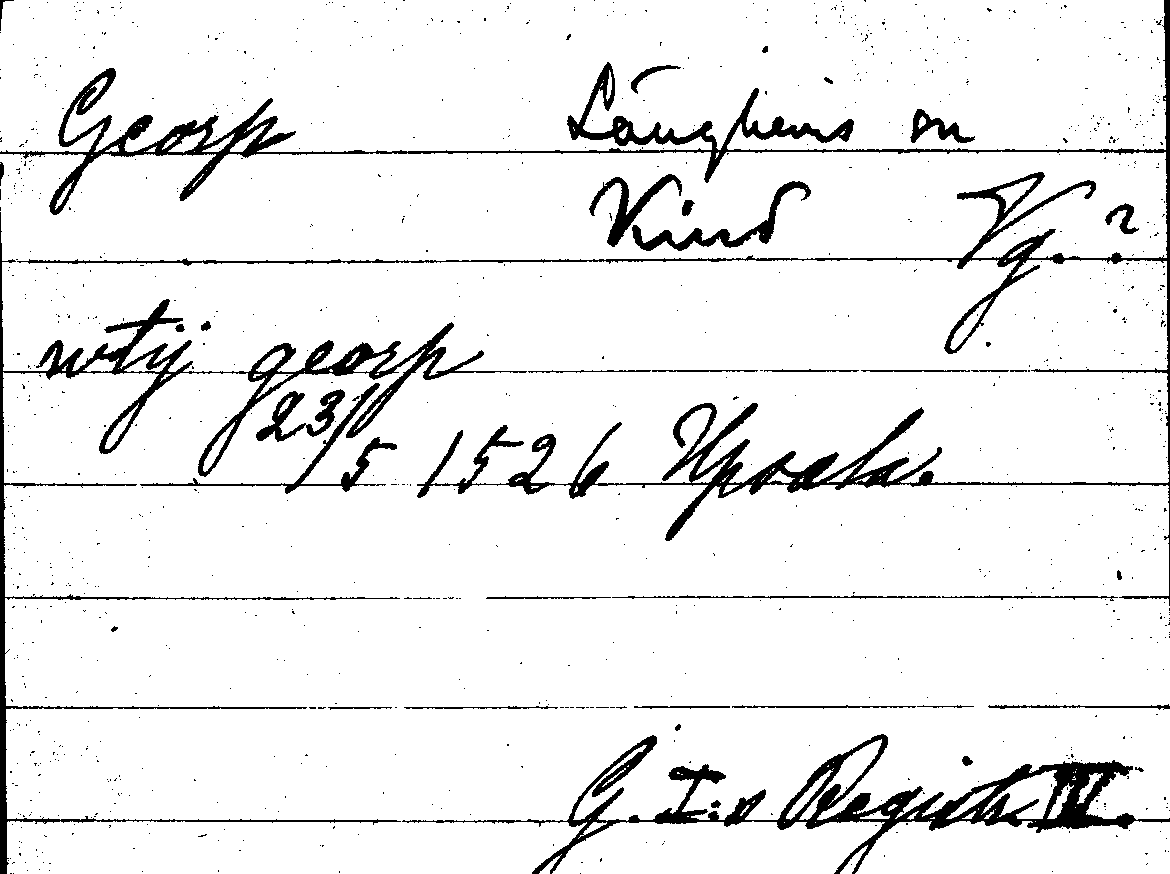 Georp Länghems sn
Kind Vg. ?
wtij georp
23/5 1526 Upsala.
G. I:s Registr. IV.